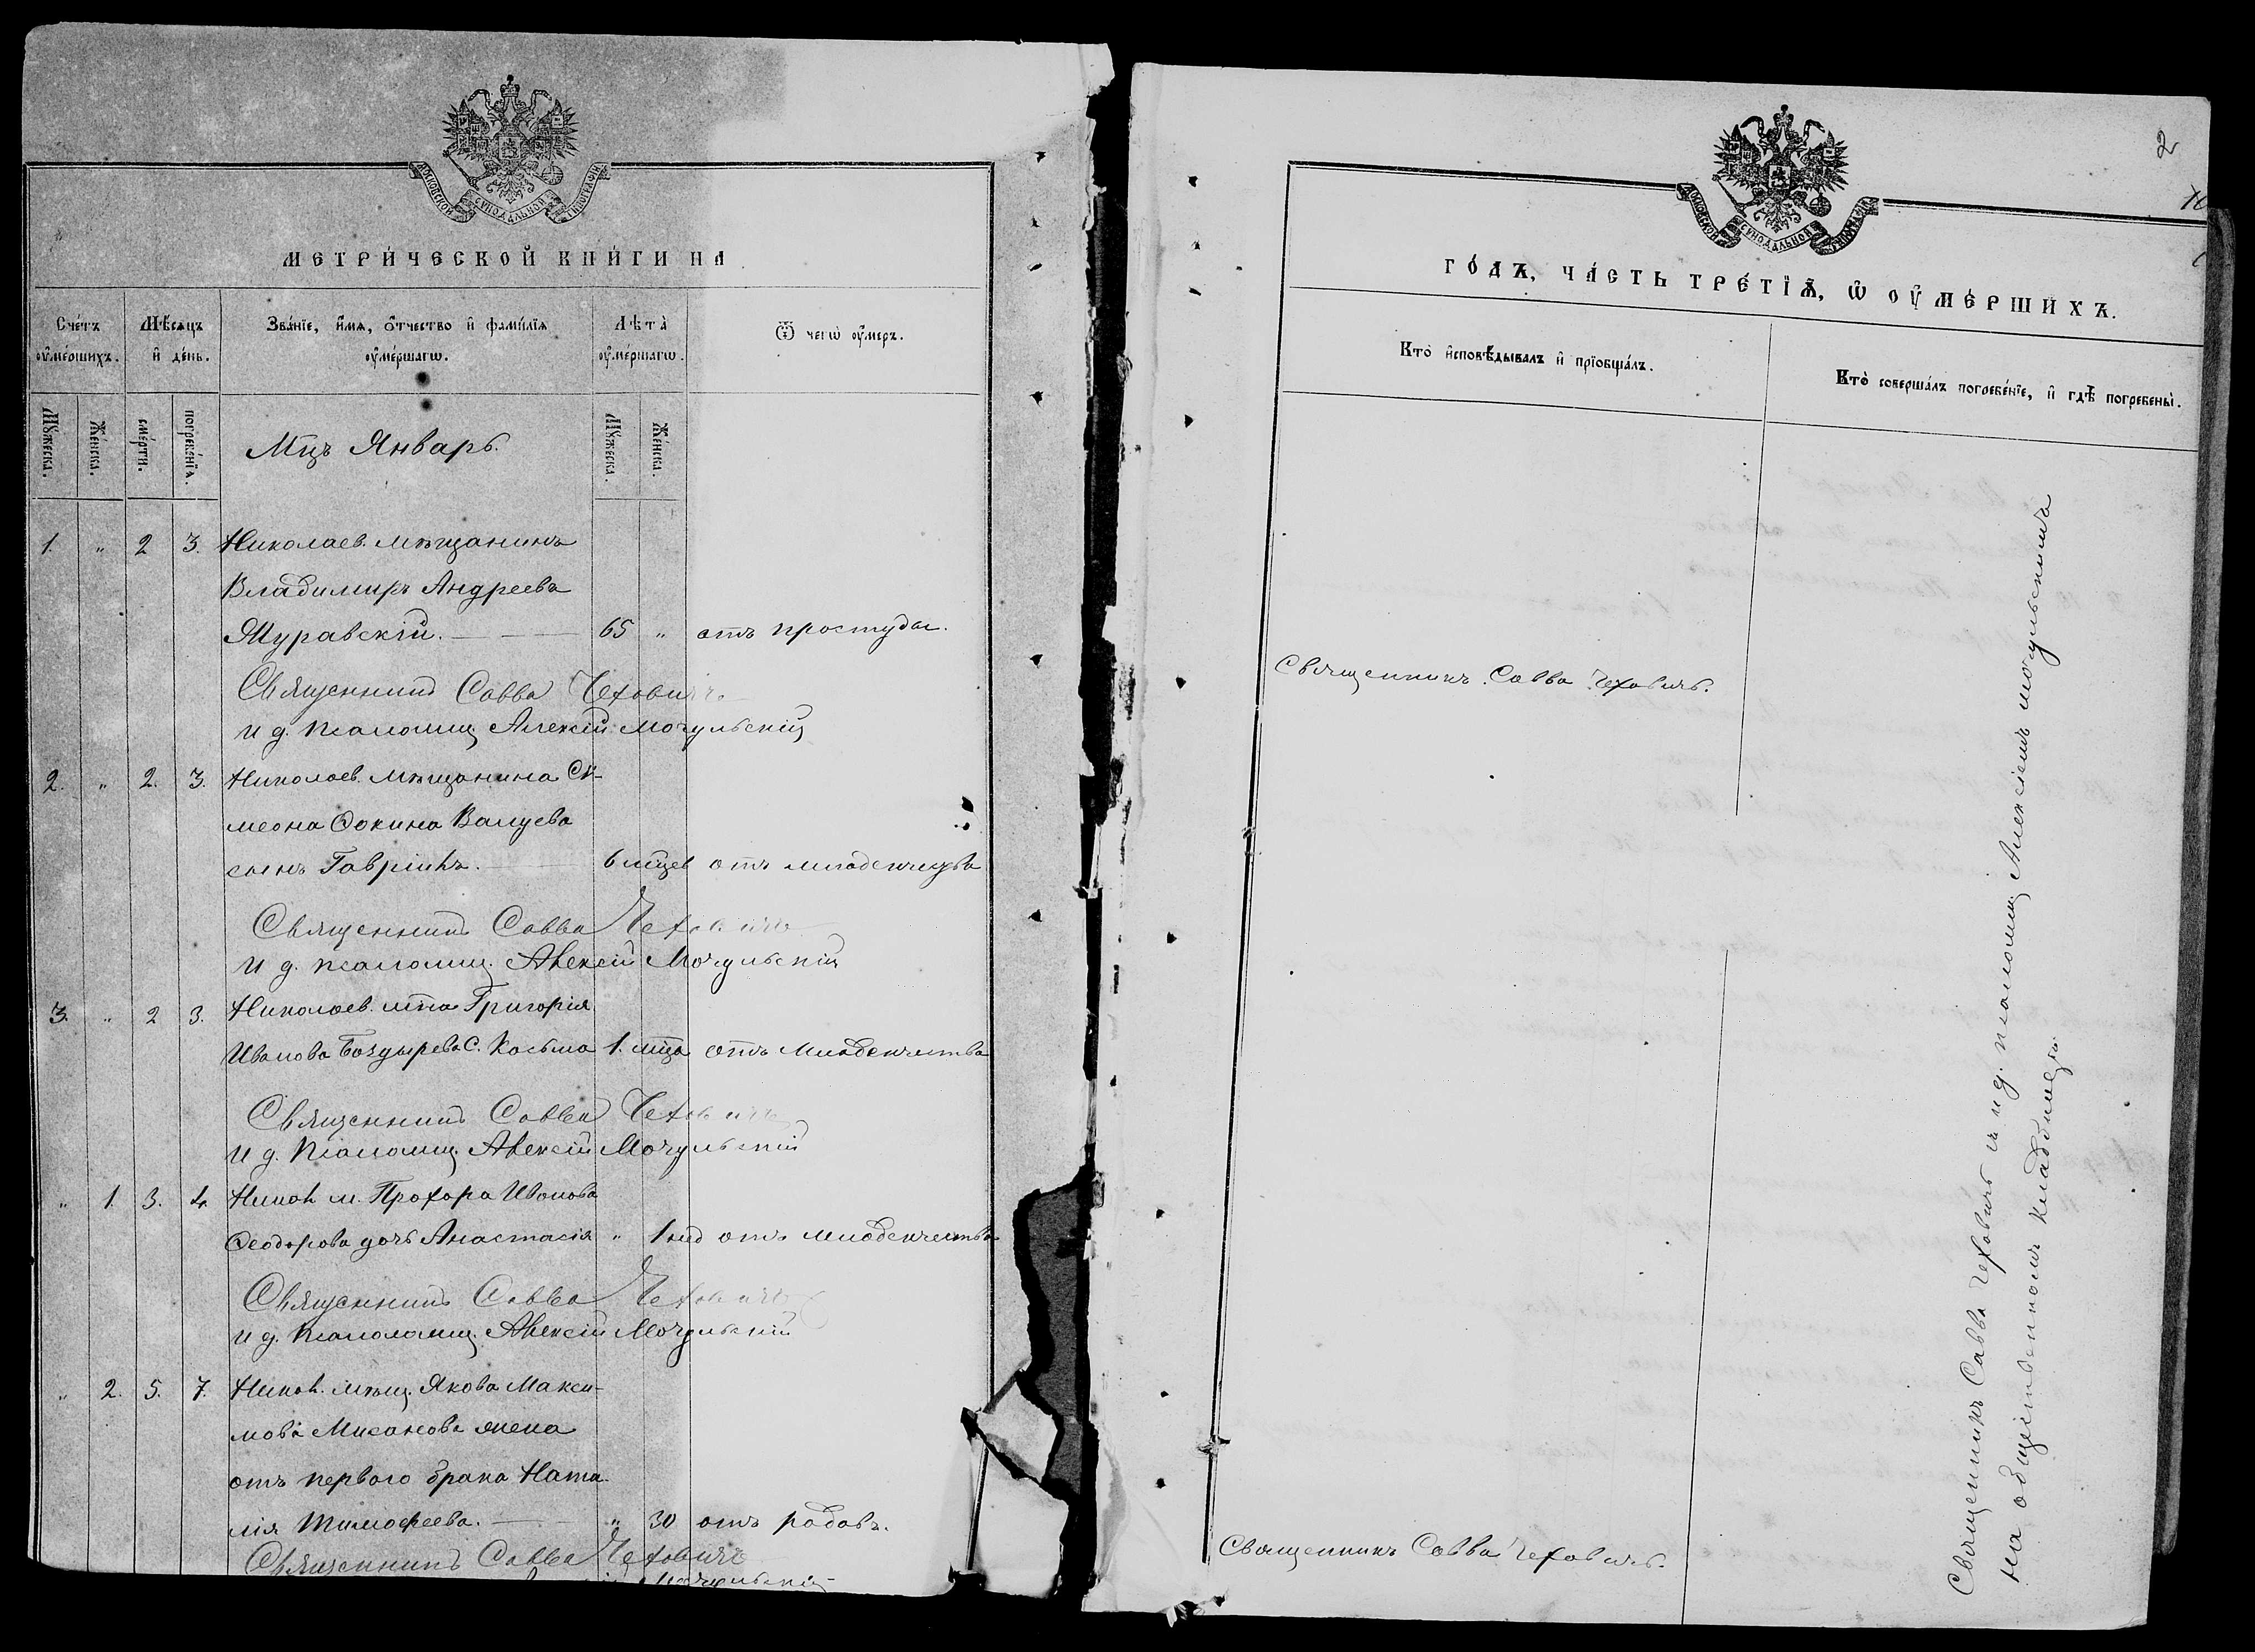 МОСКОВСКОЙ СУНОДАЛЬНОЙ ТИПОГРАФІИ
МЕТРИ́ЧЕСКОЙ КНИ́ГИ НА
Сче́тъ оу҆ме́ршихъ.
Мѣ́сѧцъ и҆ де́нь.
Зва́нїе, и҆́мѧ, ѻ҆́тчество и҆ фами́лїѧ оу҆ме́ршагѡ.
Лѣ́та оу҆ме́ршагѡ.
Ѿ чегѡ̀ оу҆́меръ.
Мꙋ́жеска.
Же́нска.
сме́рти.
погребе́нїѧ.
Мꙋ́жеска.
Же́нска.
Мцъ Январь.
1. " 2 3. Николаев. мѣщанинъ
Владимиръ Андреевъ
Муравскій. 65 " отъ простуды.
Священникъ Савва Чеховичъ
И д. псаломщ. Алексій Мочульскій
2. " 2. 3. Николаев. мѣщанина Си-
меона Фокина Валуева
сынъ Гавріилъ. 6 мцев отъ младенчества
Священникъ Савва Чеховичъ
И д. псаломщ. Алексій Мочульскій
3. " 2 3. Николаев. мѣ-на Григорія
Иванова Боздырева с. Косьма 1. мца отъ младенчества
Священникъ Савва Чеховичъ
И д. Псаломщ. Алексій Мочульскій
" 1. 3. 4. Никол. м. Прохора Иванова
Ѳеодорова дочь Анастасія " 1 нед отъ младенчества
Священникъ Савва Чеховичъ
И д. Псаломщ. Алексій Мочульскій
" 2. 5. 7. Никол. мѣщ. Якова Макси-
мова жена
отъ перваго брака Ната-
лія Тимофеева. " 30 отъ родовъ.
Священникъ Савва Чеховичъ
Мочульскій
2
МОСКОВСКОЙ СУНОДАЛЬНОЙ ТИПОГРАФІИ
ГО́ДЪ, ЧА́СТЬ ТРЕ́ТЇѦ, Ѡ҆ ОУ҆МЕ́РШИХЪ.
Кто̀ и҆сповѣ́дывалъ и҆ прїѡбща́лъ.
Кто̀ соверша́лъ погребе́нїе, и҆ гдѣ̀ погребены̀.
Священникъ Савва Чеховичъ.
Священникъ Савва Чеховичъ.
Священникъ Савва Чеховичъ съ и д. псаломщ. Алексіемъ Мочульскимъ
на общественномъ кладбищѣ.